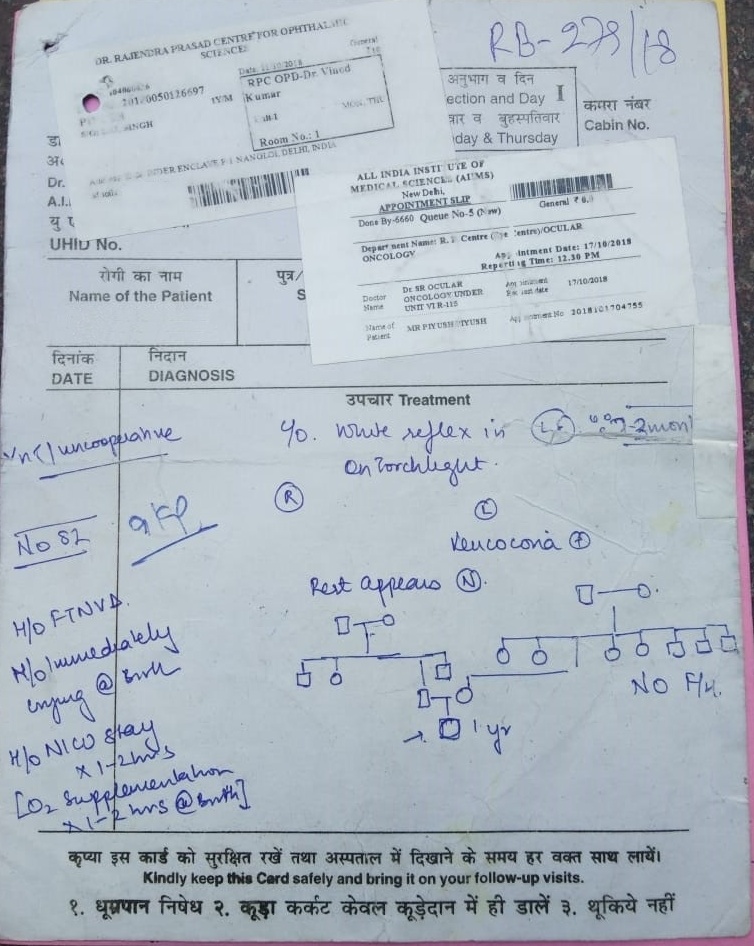 DR. RAJENDRA PRASAD CENTRE FOR OPHTHALMIC
SCIENCES
General
Date:
RPC OPD-Dr. Vinod
Kumar
1Y/M
MON, THU
SINGH
Room No.: 1
ENCLAVE NANGLOI, DELHI, INDIA
RB-279/18
अनुभाग व दिन
ection and Day I
वार व बृहस्पतिवार
day & Thursday
कमरा नंबर
Cabin No.
डा
Dr.
यु ए
UHID No.
ALL INDIA INSTITUTE OF
MEDICAL SCIENCES (AIIMS)
New Delhi,
APPOINTMENT SLIP
Done By-6660 Queue No-5 (New)
General ₹ 0.0
Department Name: R. P. Centre (Eye Centre)/OCULAR
ONCOLOGY
Appointment Date: 17/10/2018
Reporting Time: 12.30 PM
Doctor
Name
Dr SR OCULAR
ONCOLOGY UNDER
UNIT VI R-115
17/10/2018
Name of
Patient
MR PIYUSH PIYUSH
Appointment No 2018101704755
रोगी का नाम
Name of the Patient
पुत्र/
S
दिनांक
DATE
निदान
DIAGNOSIS
उपचार Treatment
Vn() uncooperative
C/o. White reflex in LE
on Torchlight.
R
L
No SL
Leucocoria +
Rest appears N.
H/O FTNVD.
H/O Immediately
crying @ Birth
NO F/H.
1 yr
H/O NICU stay
x 1-2hrs
[O2 supplementation
x 1-2 hrs @ Birth]
कृप्या इस कार्ड को सुरक्षित रखें तथा अस्पताल में दिखाने के समय हर वक्त साथ लायें।
Kindly keep this Card safely and bring it on your follow-up visits.
१. धूम्रपान निषेध २. कूड़ा कर्कट केवल कूड़ेदान में ही डालें ३. थूकिये नहीं